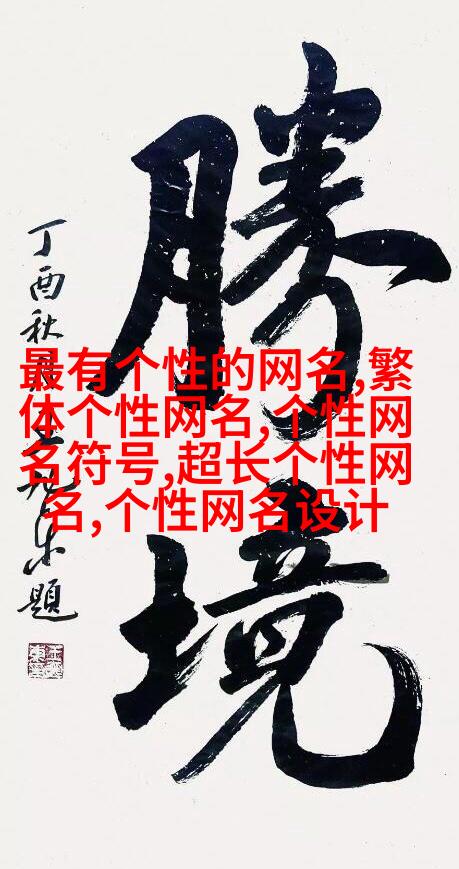 勝境
丁酉秋
題
最有个性的网名,繁
体个性网名,个性网
名符号,超长个性网
名,个性网名设计